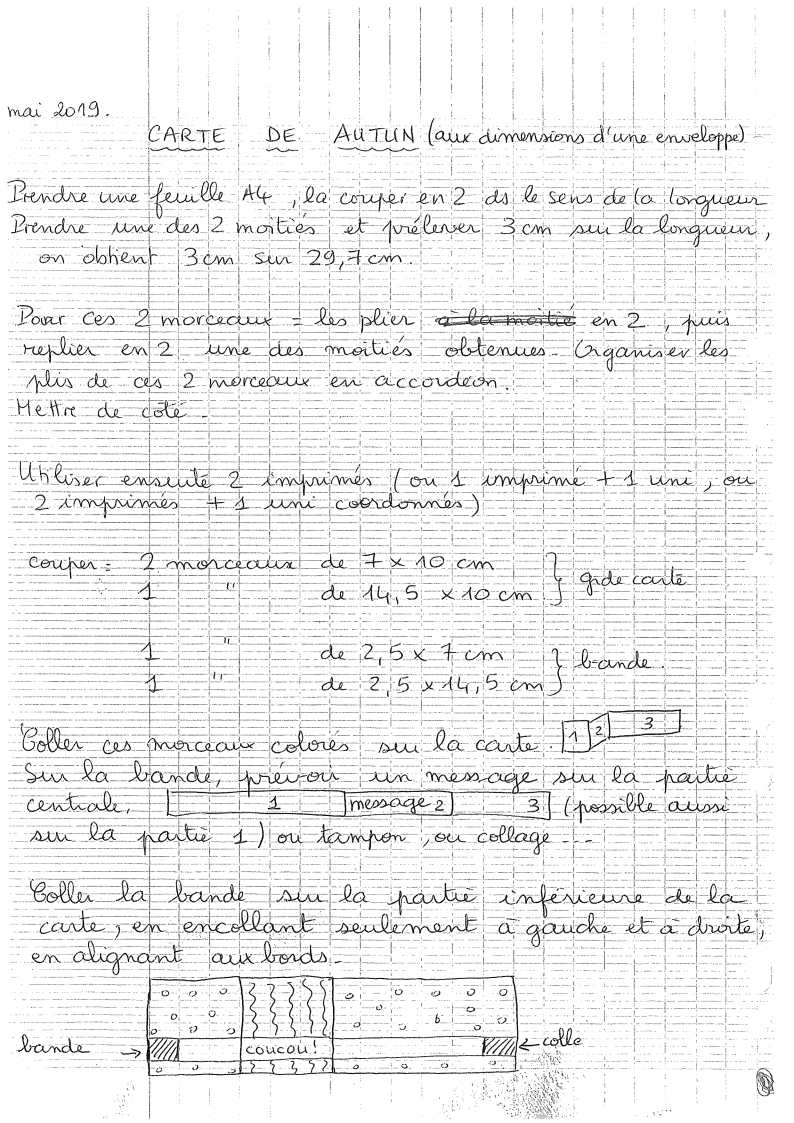 mai 2019.
CARTE DE AUTUN (aux dimensions d'une enveloppe)
Prendre une feuille A4, la couper en 2 ds le sens de la longueur
Prendre une des 2 moitiés et prélever 3 cm sur la longueur,
on obtient 3 cm sur 29,7 cm.
Pour ces 2 morceaux = les plier à la moitié en 2, puis
replier en 2 une des moitiés obtenues - Organiser les
plis de ces 2 morceaux en accordéon.
Mettre de côté -
Utiliser ensuite 2 imprimés (ou 1 imprimé + 1 uni, ou
2 imprimés + 1 uni coordonnés)
couper = 2 morceaux de 7 x 10 cm
1 " de 14,5 x 10 cm } grde carte
1 " de 2,5 x 7 cm
1 " de 2,5 x 14,5 cm } bande.
Coller ces morceaux colorés sur la carte. 1 2 3
Sur la bande, prévoir un message sur la partie
centrale, 1 message 2 3 (possible aussi
sur la partie 1) ou tampon, ou collage ---
Coller la bande sur la partie inférieure de la
carte, en encollant seulement à gauche et à droite,
en alignant aux bords -
bande → coucou! ← colle